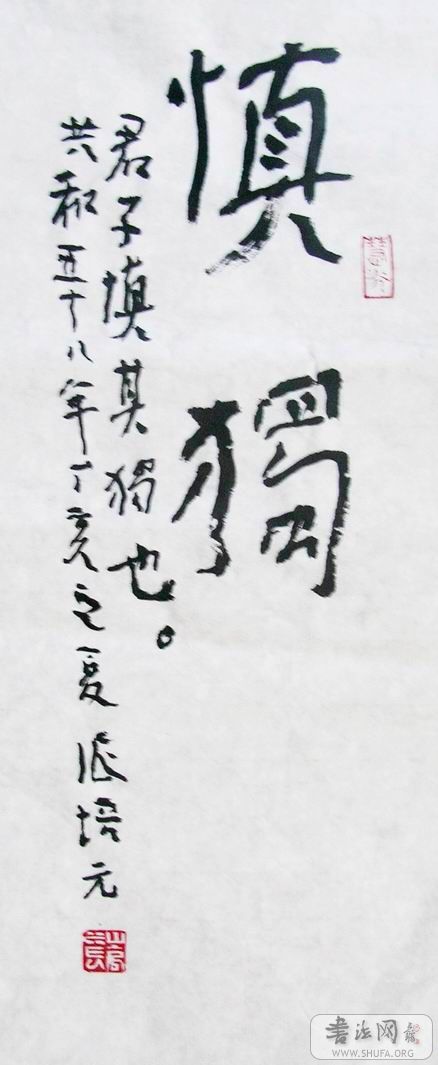 慎獨
君子慎其獨也。
共和五十八年丁亥之夏張培元
書法网
WWW.SHUFA.ORG